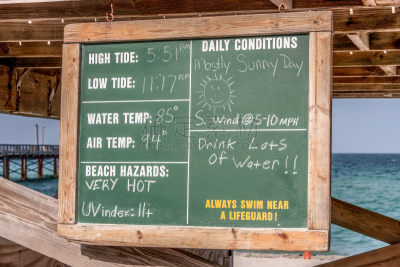 HIGH TIDE: 5:51 PM
LOW TIDE: 11:17 AM
WATER TEMP: 85°
AIR TEMP: 94°
BEACH HAZARDS:
VERY HOT
UV index: 11+
DAILY CONDITIONS
Mostly Sunny Day
S. Wind @ 5-10 MPH
Drink Lots
of Water!!
ALWAYS SWIM NEAR
A LIFEGUARD!